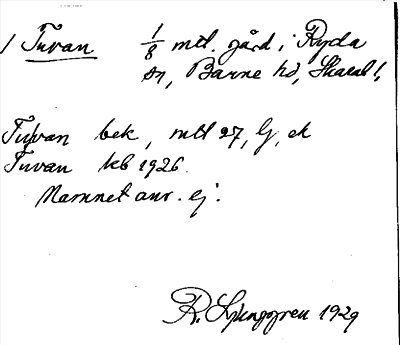 / Tuvan 1/8 mtl. gård i Ryda
sn, Barne hd, Skarab. l.
Tuvan bek, mtl 27, G, ek
Tuvan kb 1926.
Namnet anv. ej.
R. Ljunggren 1929